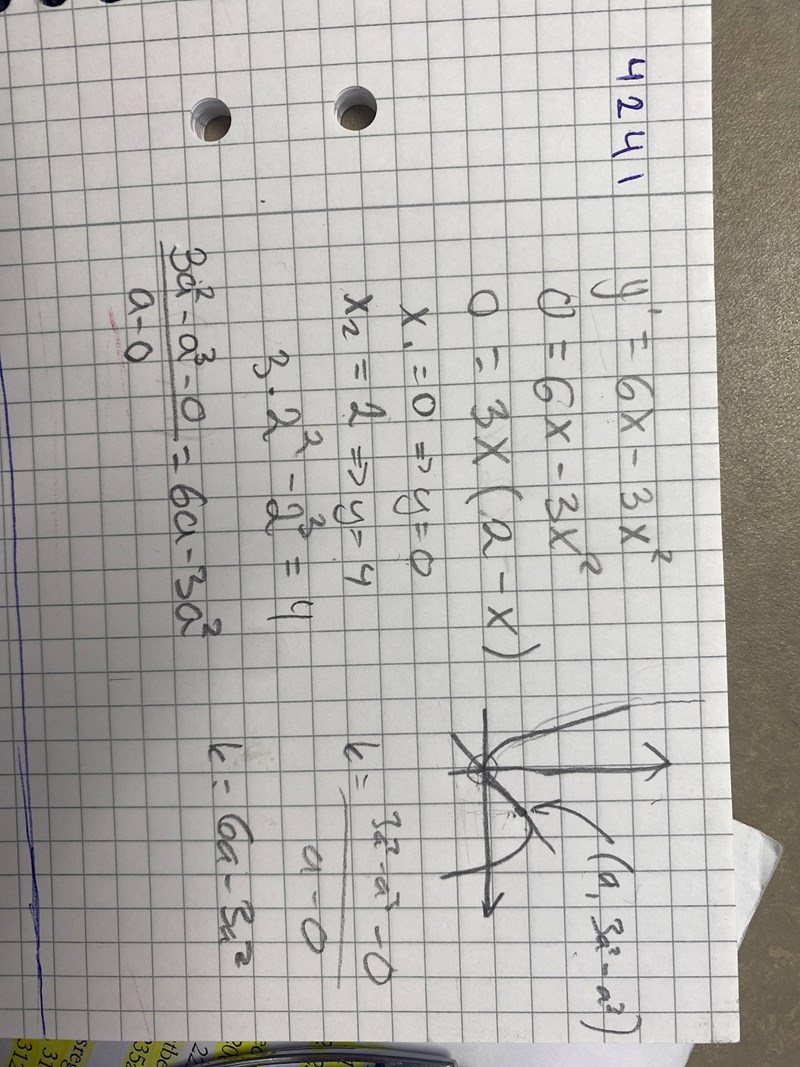 4241
y' = 6x - 3x²
0 = 6x - 3x²
0 = 3x(2 - x)
x₁ = 0 => y = 0
x₂ = 2 => y = 4
3·2² - 2³ = 4
(3a² - a³ - 0)/(a - 0) = 6a - 3a²
(a, 3a² - a³)
k = (3a² - a³ - 0)/(a - 0)
k = 6a - 3a²